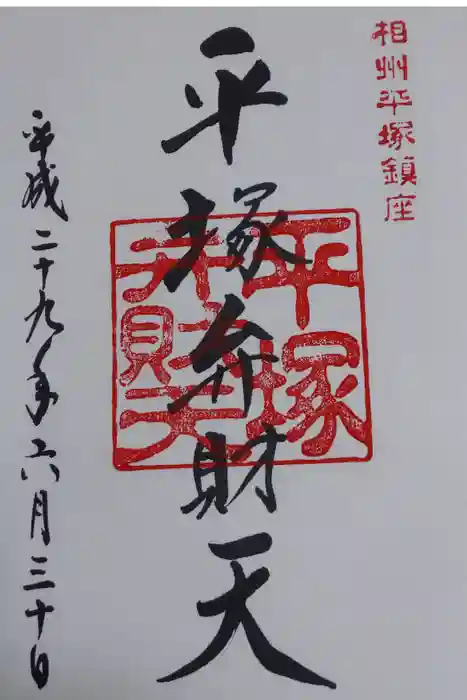 相州平塚鎮座
平塚弁財天
平塚弁財天
平成二十九年六月三十日